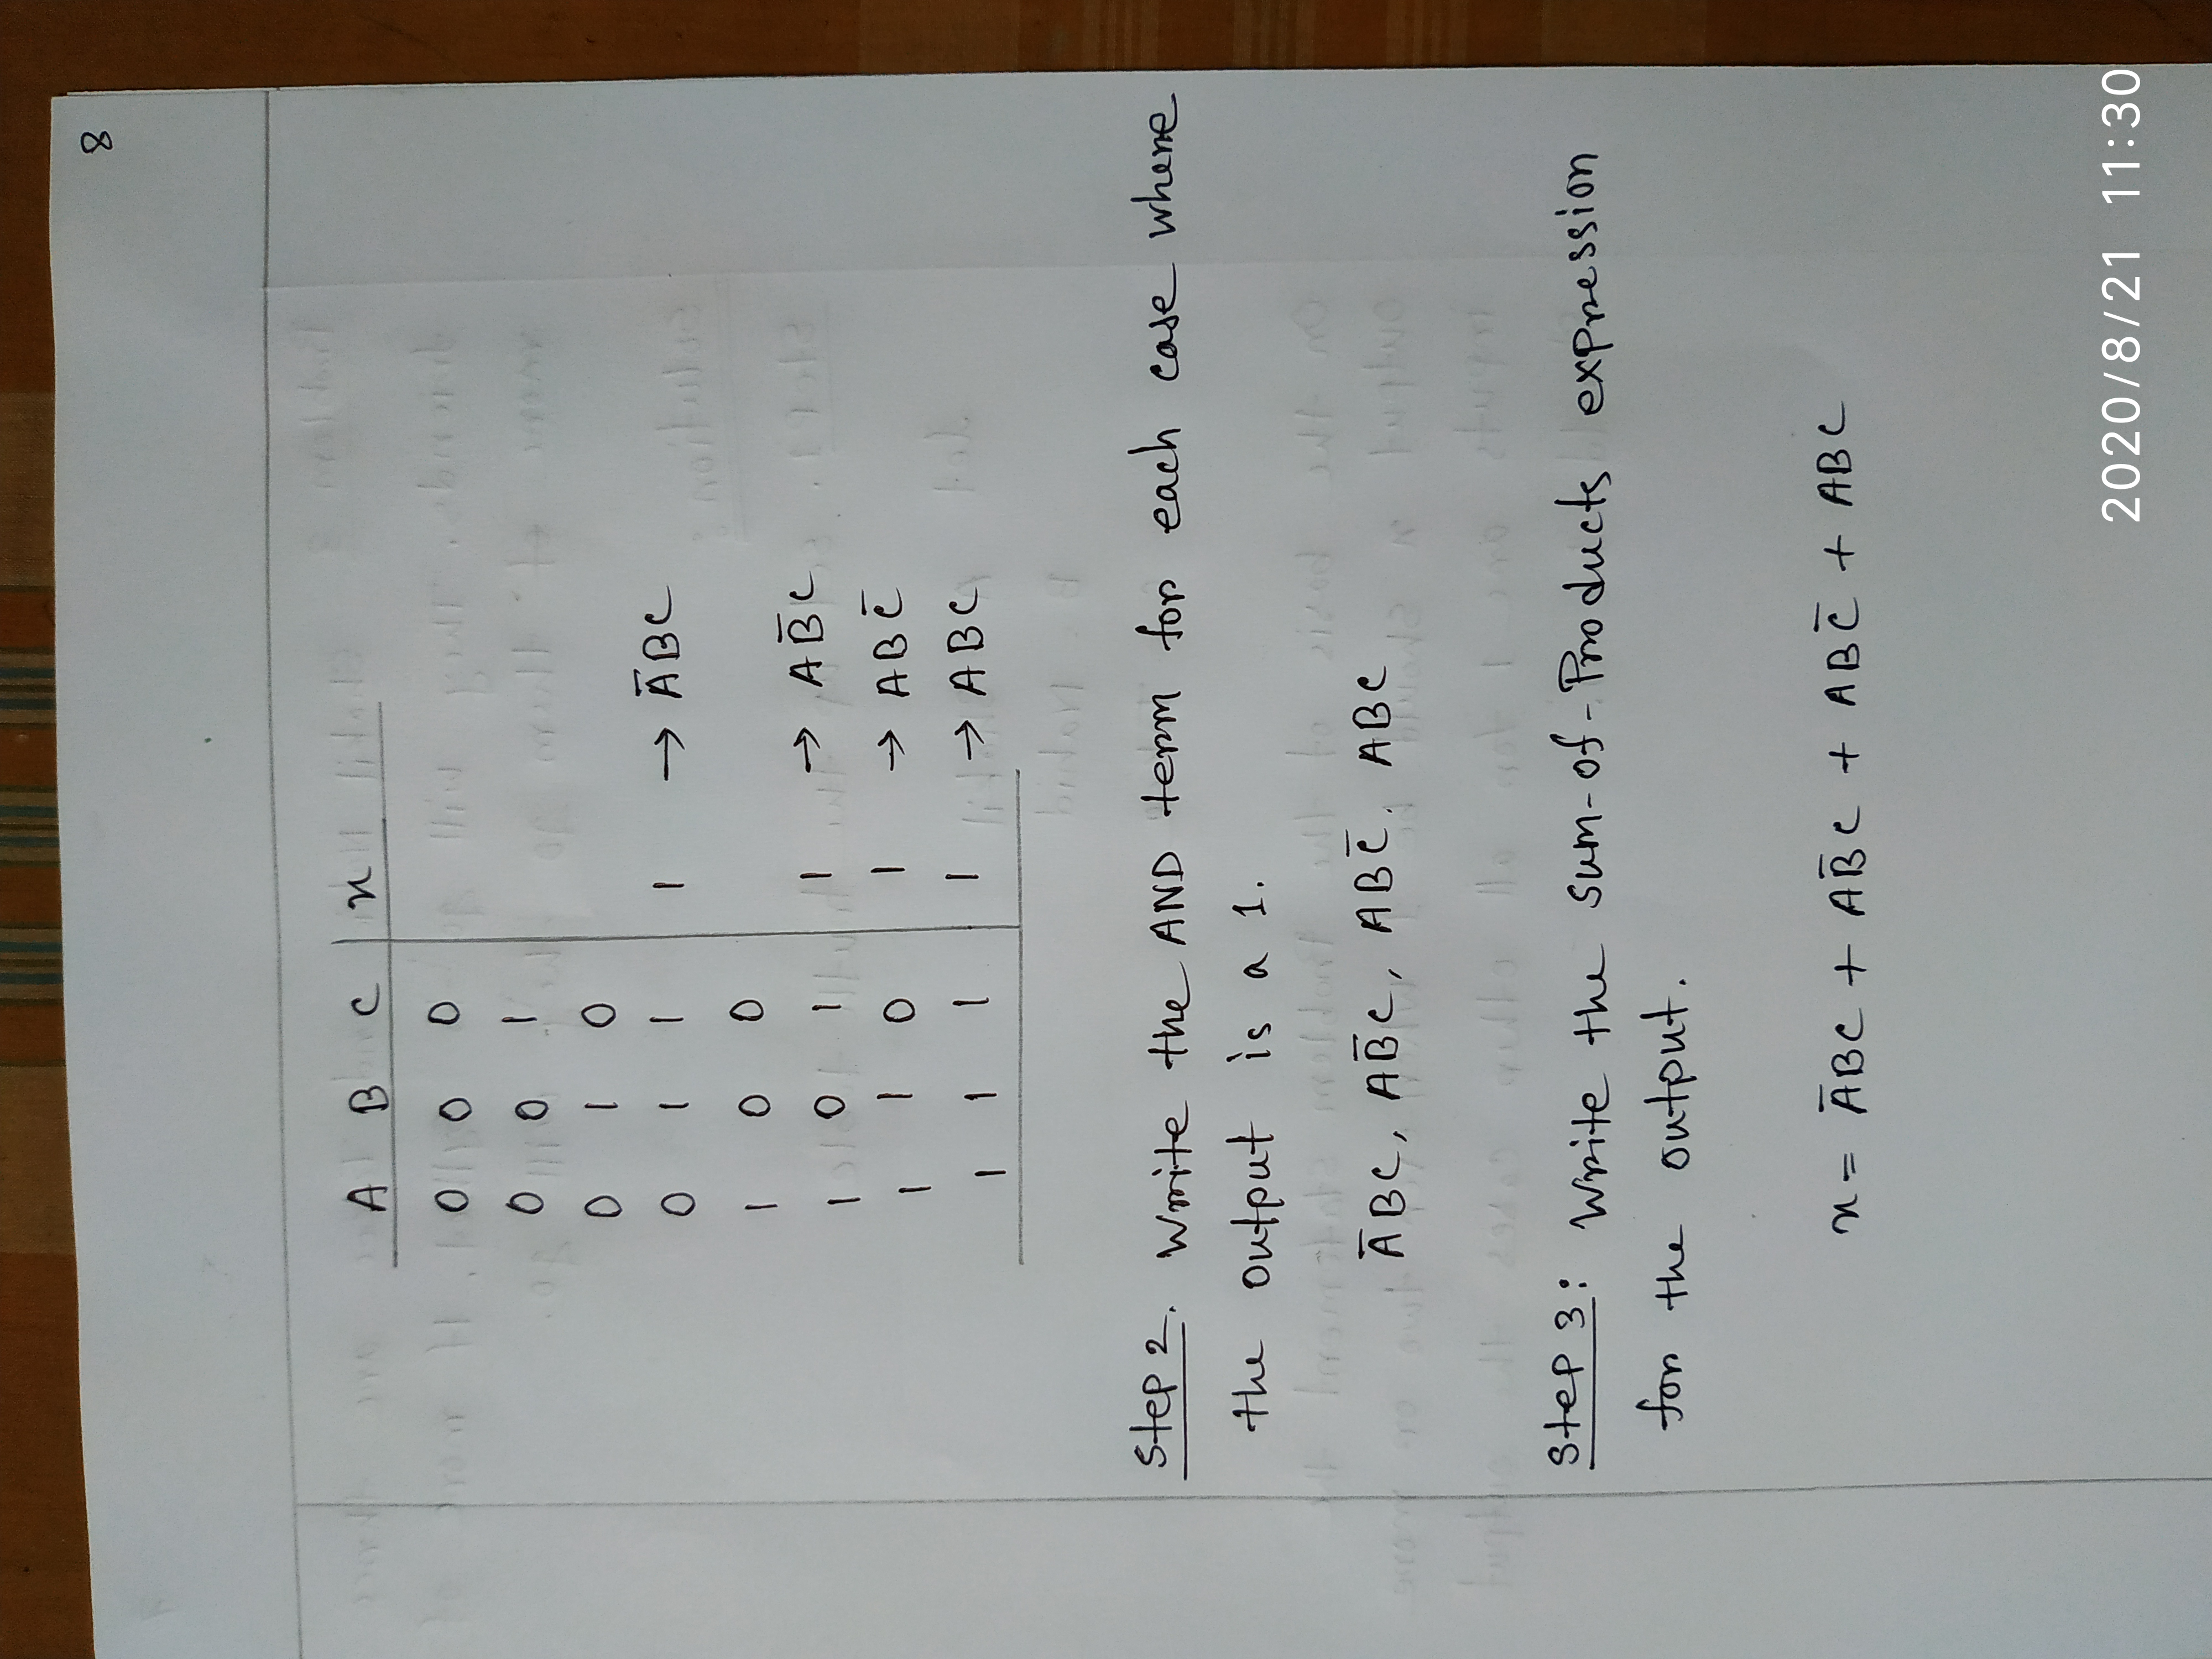 8
A B C x
0 0 0
0 0 1
0 1 0
0 1 1 1 → A̅BC
1 0 0
1 0 1 1 → AB̅C
1 1 0 1 → ABC̅
1 1 1 1 → ABC
Step 2. Write the AND term for each case where
the output is a 1.
A̅BC, AB̅C, ABC̅. ABC
Step 3: Write the sum-of-Products expression
for the output.
x = A̅BC + AB̅C + ABC̅ + ABC
2020/8/21 11:30